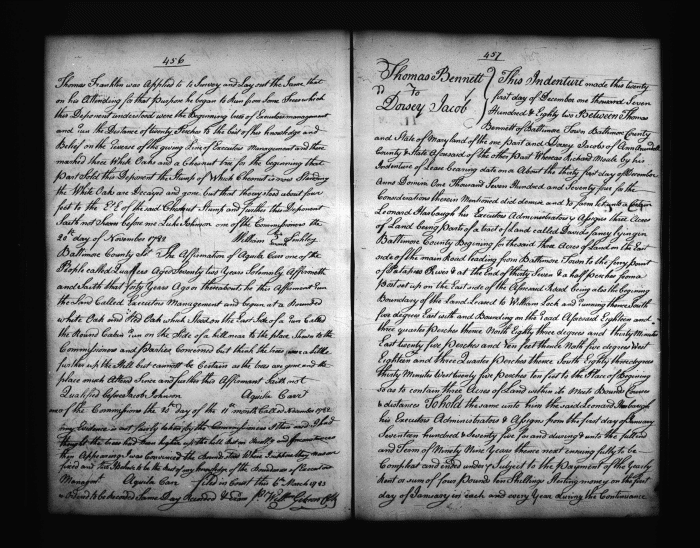 456
Thomas Franklin was Applied to to Survey and Lay out the Same that
on his Attending for that Purpose he began to Run from Some Trees which
this Deponent understood were the Beginning trees of Executors management
and Run the Distance of twenty Perches to the best of his Knowledge and
Belief on the Reverse of the given Line of Executors Management and there
marked three White Oaks and a Chesnut tree for the beginning that
part Sold this Deponent the Stump of Which Chesnut is now Standing
the White Oaks are Decayed and gone but that they stood about four
feet to the of the said Chesnut Stump and further this Deponent
Saith not Sworn before me Luke Johnson one of the Commissioners the
20th day of November 1782 William
Baltimore County Sct The Affirmation of Aquila Carr one of the
People called Quakers Aged Seventy two Years Solemnly Affirmeth
and Saith that forty Years Ago or thereabouts he this Affirmant Run
the Land Called Executors Management and began at a Bounded
White Oak and Red Oak which Stood on the East Side of a Run Called
the Round Cabin Run on the Side of a hill near to the place Shewn to the
Commissioners and Parties Concerned but think the trees were a little
further up the Hill but cannott be Certain as the trees are gone and the
place much Altered Since and further this Affirmant Saith not
Qualified before Jacob Johnson Aquila Carr
one of the Commissioners the 20th day of the 11th month Called November 1782
my Evidence is not fairly taken by the Commissioners
thought the trees had been higher up the hill but on

Managemt Aquila Carr filed in Court the 6th March 1783
Ordered to be Recorded Same Day Recorded & Exam pr Wm Gibson Clk
457
Thomas Bennett
To
Dorsey Jacob
This Indenture made this twenty
first day of December one thousand Seven
Hundred & Eighty two Between Thomas
Bennett of Baltimore Town Baltimore County
and State of Maryland of the one part and Dorsey Jacobs of Ann Arundell
County & State Aforesaid of the Other part Whereas Richard Moale by his
Indenture of Lease bearing date on a About the thirty first day of December
Anno Domini One Thousand Seven Hundred and Seventy four for the
Considerations therein Mentioned did demise and to farm to
Leonard Harbaugh his Executors Administrators & Assigns three Acres
of Land being Part of a tract of Land called David's fancy lying in
Baltimore County Begining for the said three Acres of Land on the East
side of the main Road leading from Baltimore Town to the ferry point
of Patapsco River & at the End of thirty Seven & a half perches from a
Post set up on the East side of the Aforesaid Road being also the begining
Boundary of the Land Leased to William Lock and running thence South
five degrees East with and Bounding on the Road Aforesaid Eighteen and
three quarter perches thence North Eighty three degrees and thirty Minutes
East twenty five perches and ten feet thence North five degrees West
Eighteen and three Quarter Perches thence South Eighty three degrees
thirty Minutes West twenty five perches ten feet to the Place of Begining
So as to contain three Acres of Land within its Meets Bounds Courses
& distances To hold the same unto him the said Leonard Harbaugh
his Executors Administrators & Assigns from the first day of January
Seventeen hundred & Seventy five for and during & unto the full end
and Term of Ninety Nine Years thence next ensuing fully to be
Compleat and ended under & Subject to the Payment of the Yearly
Rent or sum of four Pounds ten Shillings Sterling money on the first
day of January in each and every Year during the Continuance